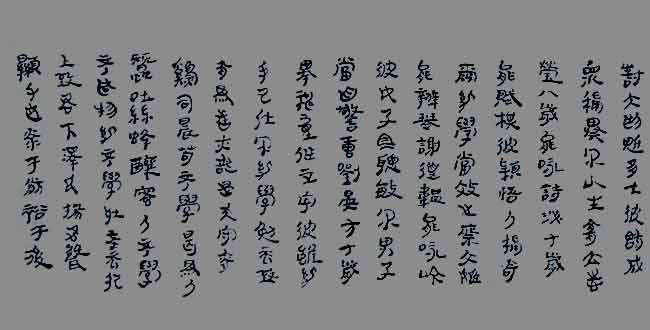 對大廷魁多士彼既成
眾稱異爾小生宜立志
瑩八歲能詠詩泌七歲
能賦棋彼穎悟人稱奇
爾幼學當效之蔡文姬
能辨琴謝道韞能詠吟
彼女子且聰敏爾男子
當自警唐劉晏方七歲
舉神童作正字彼雖幼
身已仕爾幼學勉而致
有為者亦若是犬守夜
雞司晨苟不學曷為人
蠶吐絲蜂釀蜜人不學
不如物幼而學壯而行
上致君下澤民揚名聲
顯父母光于前裕于後